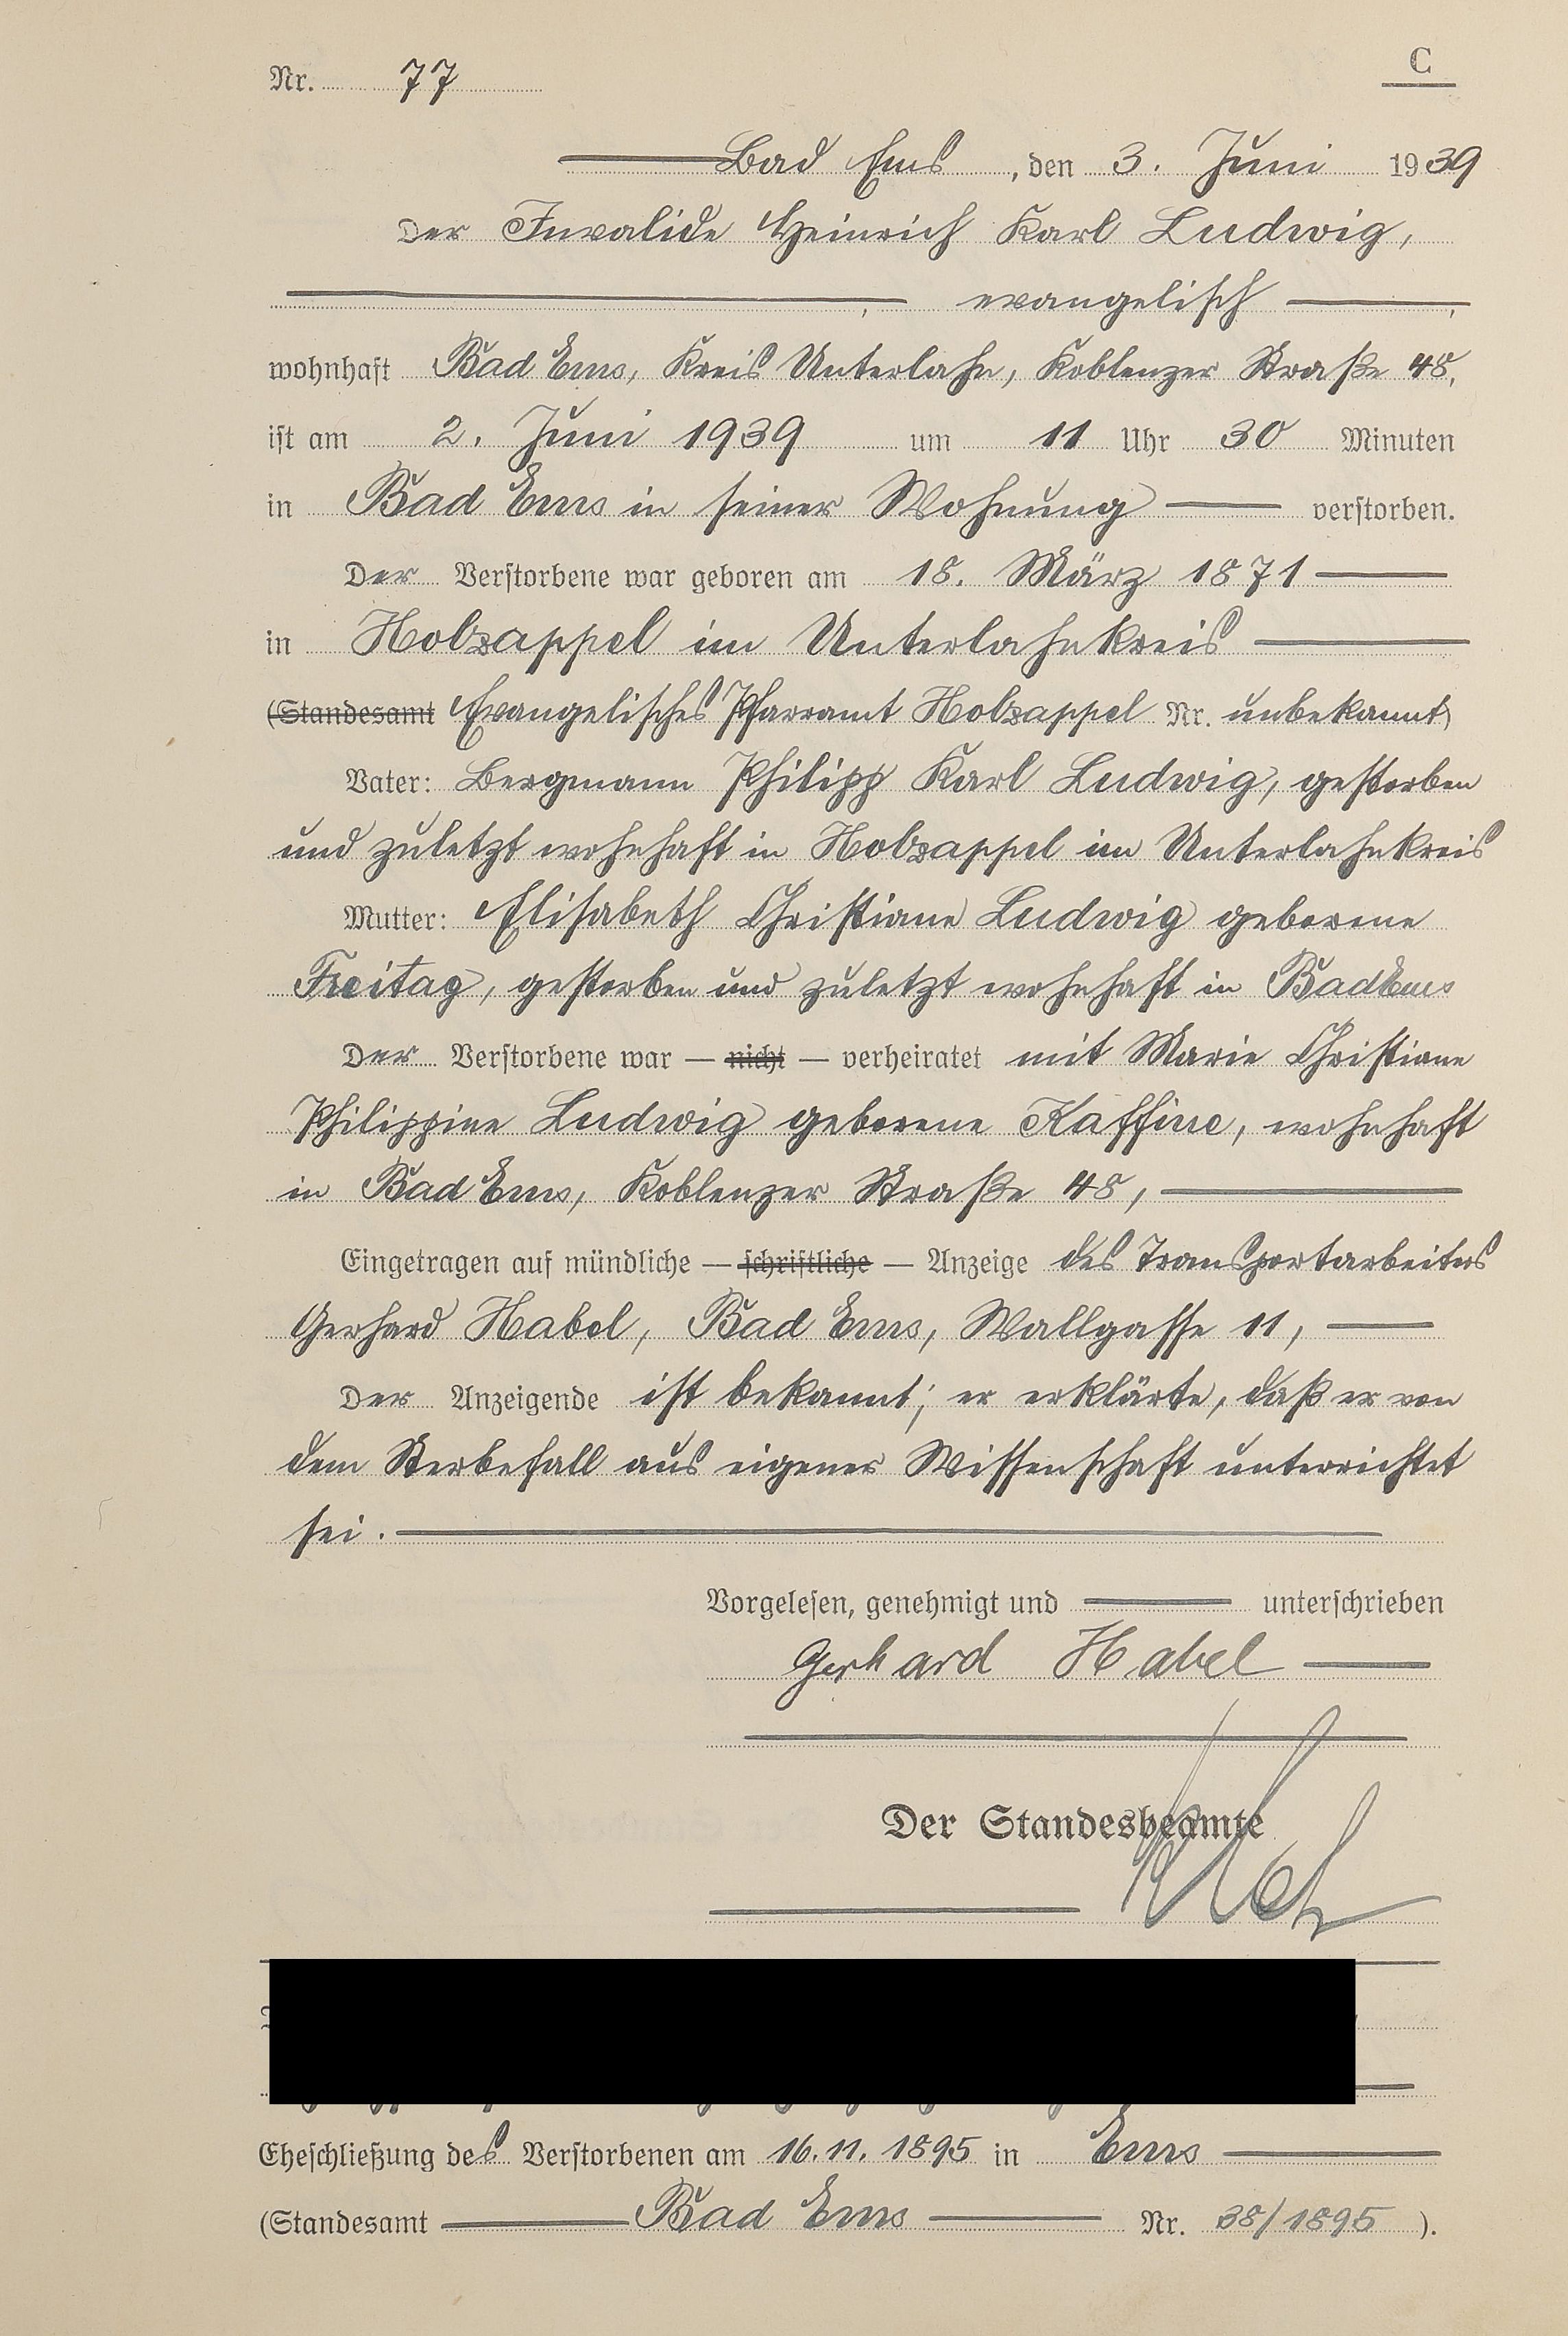 Nr. 77
C
Bad Ems, den 3. Juni 1939
Der Invalide Heinrich Karl Ludwig,
, evangelisch ,
wohnhaft Bad Ems, Kreis Unterlahn, Koblenzer Straße 48,
ist am 2. Juni 1939 um 11 Uhr 30 Minuten
in Bad Ems in seiner Wohnung verstorben.
Der Verstorbene war geboren am 18. März 1871
in Holzappel im Unterlahnkreis
(Standesamt Evangelisches Pfarramt Holzappel Nr. unbekannt)
Vater: Bergmann Philipp Karl Ludwig, gestorben
und zuletzt wohnhaft in Holzappel im Unterlahnkreis
Mutter: Elisabeth Christiane Ludwig geborene
Freitag, gestorben und zuletzt wohnhaft in Bad Ems
Der Verstorbene war — nicht — verheiratet mit Marie Christiane
Philippine Ludwig geborene Kaffine, wohnhaft
in Bad Ems, Koblenzer Straße 48,
Eingetragen auf mündliche — schriftliche — Anzeige des Transportarbeiters
Gerhard Habel, Bad Ems, Wallgasse 11,
Der Anzeigende ist bekannt; er erklärte, daß er von
dem Sterbefall aus eigener Wissenschaft unterrichtet
sei.
Vorgelesen, genehmigt und unterschrieben
Gerhard Habel
Der Standesbeamte
Eheschließung des Verstorbenen am 16.11.1895 in Ems
(Standesamt Bad Ems Nr. 38/1895).